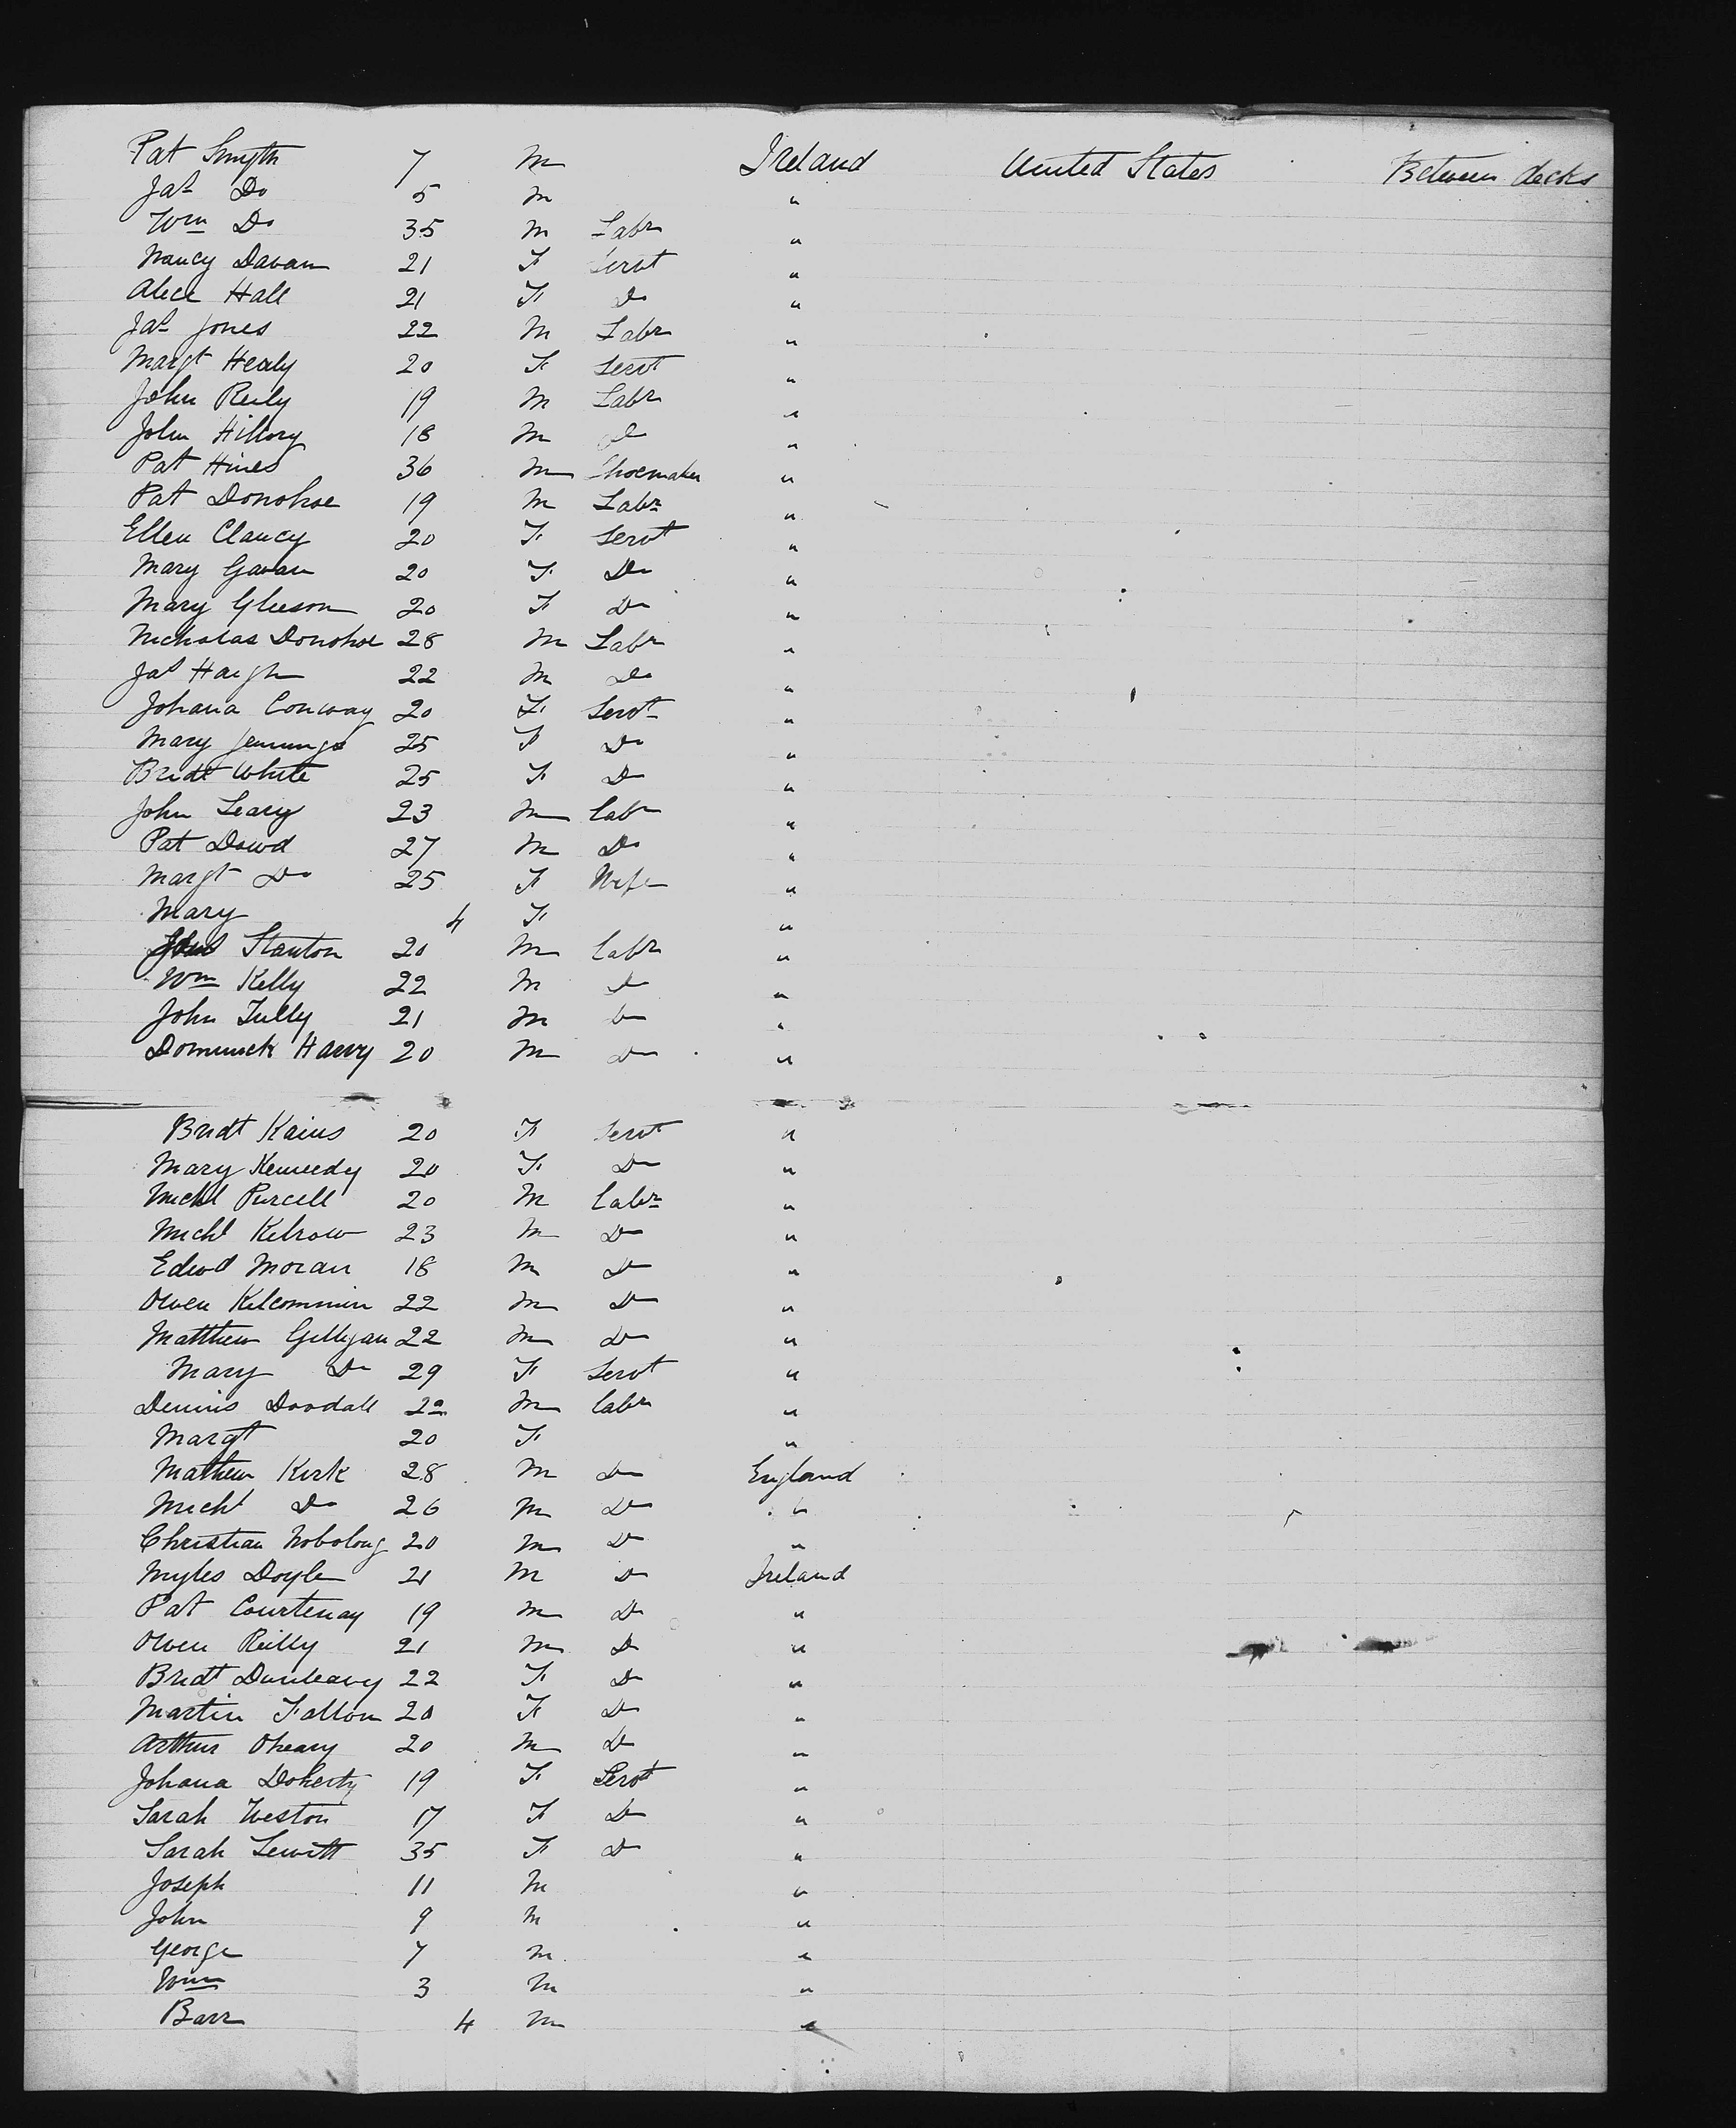 Pat Smyth 7 m Ireland United States Between decks
Jas Do 5 m "
Wm Do 35 m Labr "
Nancy Davan 21 F Servt "
Alice Hall 21 F Do "
Jas Jones 22 m Labr "
Margt Healy 20 F Servt "
John Reily 19 m Labr "
John Hillory 18 m do "
Pat Hines 36 m Shoemaker "
Pat Donohoe 19 m Labr "
Ellen Clancy 20 F Servt "
Mary Gavan 20 F Do "
Mary Gleeson 20 F Do "
Nicholas Donohoe 28 m Labr "
Jas Haigh 22 m Do "
Johana Conway 20 F Servt "
Mary Jennings 25 F Do "
Bridt White 25 F Do "
John Leary 23 m labr "
Pat Dowd 27 m Do "
Margt Do 25 F Wife "
Mary 4 F "
Stanton 20 m labr "
Wm Kelly 22 m do "
John Tully 21 m "
Dominick Harvy 20 m Do "
Bridt Kains 20 F Servt "
Mary Kennedy 20 F Do "
Michl Purcell 20 m labr "
Michl Kilrow 23 m Do "
Edwd Moran 18 m Do "
Owen Kilcommin 22 m Do "
Matthew Gilligan 22 m Do "
Mary Do 29 F Servt "
Dennis Doodall 22 m labr "
Margt 20 F "
Mathew Kirk 28 m Do England
Michl Do 26 m Do "
Christian 20 m Do "
Myles Doyle 21 m Do Ireland
Pat Courtenay 19 m Do "
Owen Reilly 21 m Do "
Bridt Dunleavy 22 F Do "
Martin Fallon 20 F Do "
Arthur Oheary 20 m Do "
Johana Doherty 19 F Servt "
Sarah Weston 17 F Do "
Sarah Lewitt 35 F Do "
Joseph 11 m "
John 9 m "
George 7 m "
Wm 3 m "
Barr 4 m "